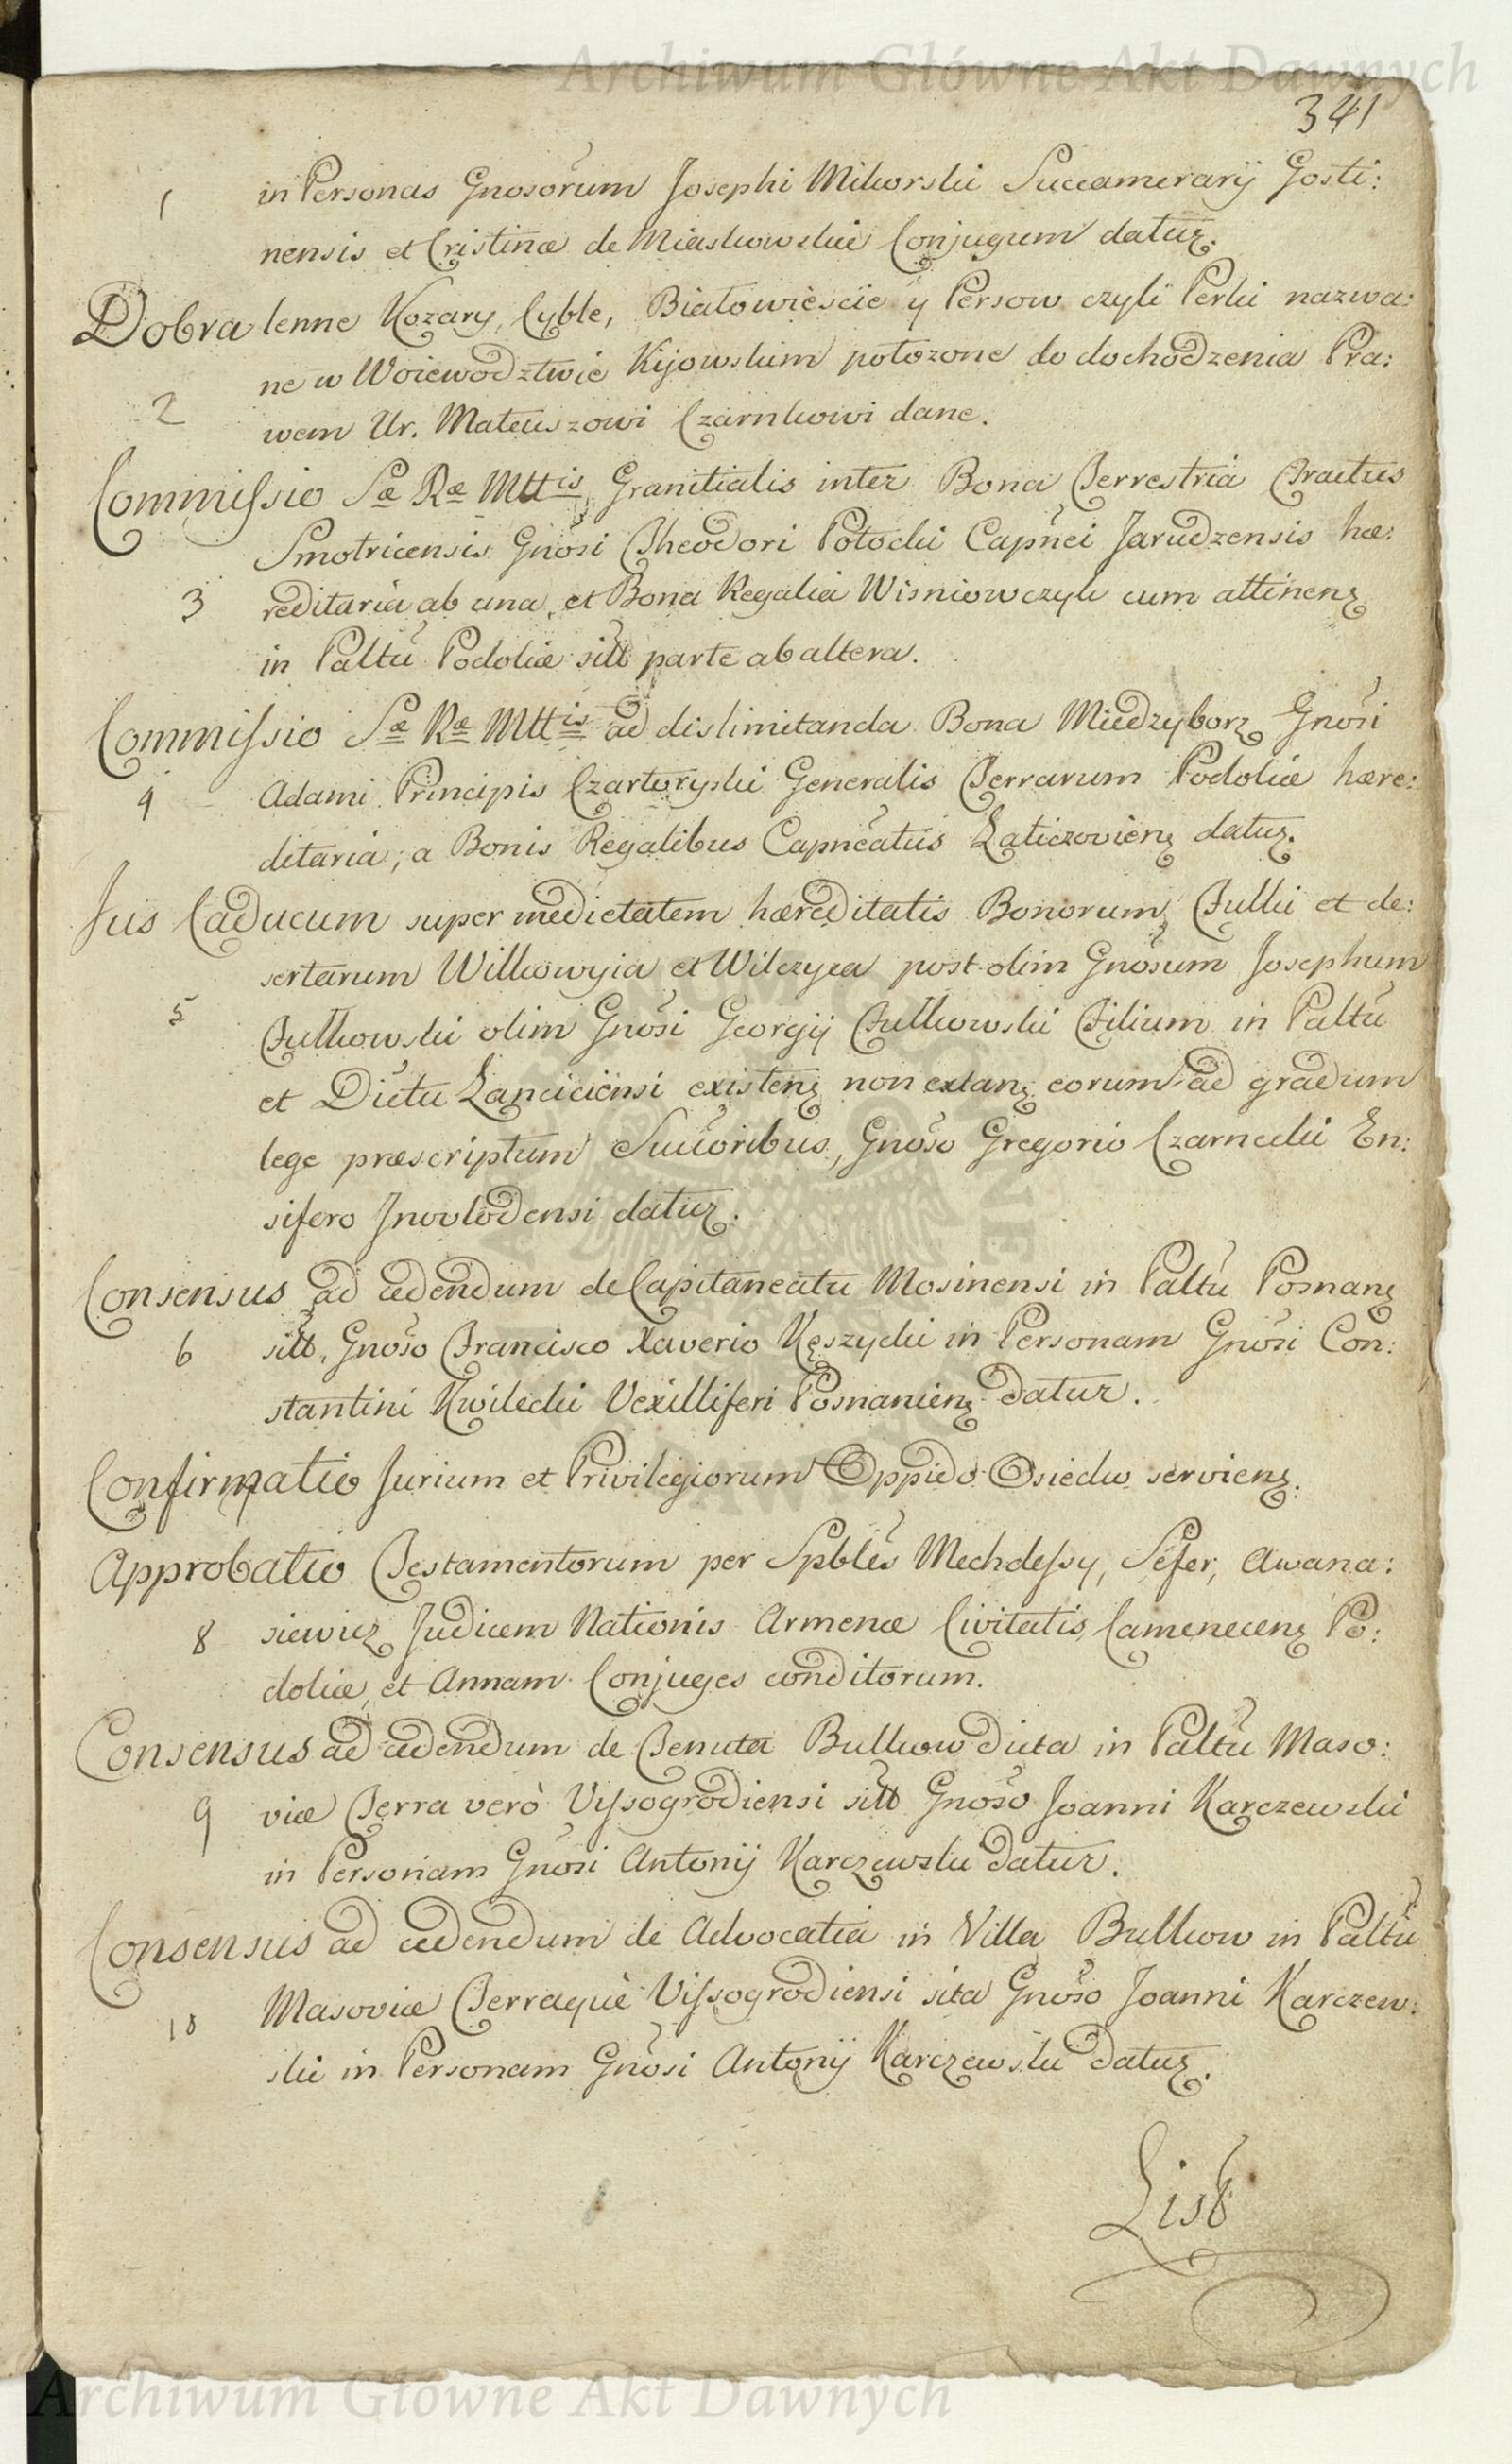 Archiwum Główne Akt Dawnych
341
1 in Personas Gnosorum Josephi Mikorski Succamerarij Gosti:
nensis et Cristinæ de Miaskowskie Conjugum datur.
Dobra lenne Kozary, Cyble, Białowieście y Persow czyli Perki nazwa:
ne w Woiewodztwie Kijowskim położone do dochodzenia Pra:
2 wem Ur. Mateuszowi Czarnkowi dane.
Commissio Sæ Ræ Mttis Granitialis inter Bona Terrestria Tractus
Smotricensis Gnosi Theodori Potocki Capnei Jarudzensis hæ:
3 reditaria ab una, et Bona Regalia Wisniowczyk cum attinenz
in Paltu Podoliæ sitt parte ab altera.
Commissio Sæ Ræ Mttis ad dislimitanda Bona Miedzyborz Gnosi
4 Adami Principis Czartoryski Generalis Terrarum Podoliæ hære:
ditaria, a Bonis Regalibus Capneatus Laticzovienz datur.
Jus Caducum super medietatem hæreditatis Bonorum Tulki et de:
sertarum Wilkowyia et Wilczyca post olim Gnosum Josephum
5 Tulkowski olim Gnosi Georgij Tulkowski Filium in Paltu
et Dictu Lanciciensi existenz non extanz eorum ad gradum
lege præscriptum Succoribus, Gnoso Gregorio Czarnecki En:
sifero Inowlodensi datur.
Consensus ad cedendum de Capitaneatu Mosinensi in Paltu Posnanz
6 sitt, Gnoso Francisco Xaverio Kęszycki in Personam Gnosi Con:
stantini Kwilecki Vexilliferi Posnanienz datur.
Confirmatio Jurium et Privilegiorum Oppido Osieck servienz.
Approbatio Testamentorum per Spbles Mechdessy, Sefer, Awana:
8 siewicz Judicem Nationis Armenæ Civitatis Camenecenz Po:
doliæ, et Annam Conjuges conditorum.
Consensus ad cedendum de Tenuta Bulkow dicta in Paltu Maso:
9 viæ Terra verò Vissogrodiensi sitt Gnoso Joanni Karczewski
in Personam Gnosi Antonij Karczewski datur.
Consensus ad cedendum de Advocatia in Villa Bulkow in Paltu
10 Masoviæ Terraque Vissogrodiensi sita Gnoso Joanni Karczew:
ski in Personam Gnosi Antonij Karczewski datur.
List
Archiwum Główne Akt Dawnych